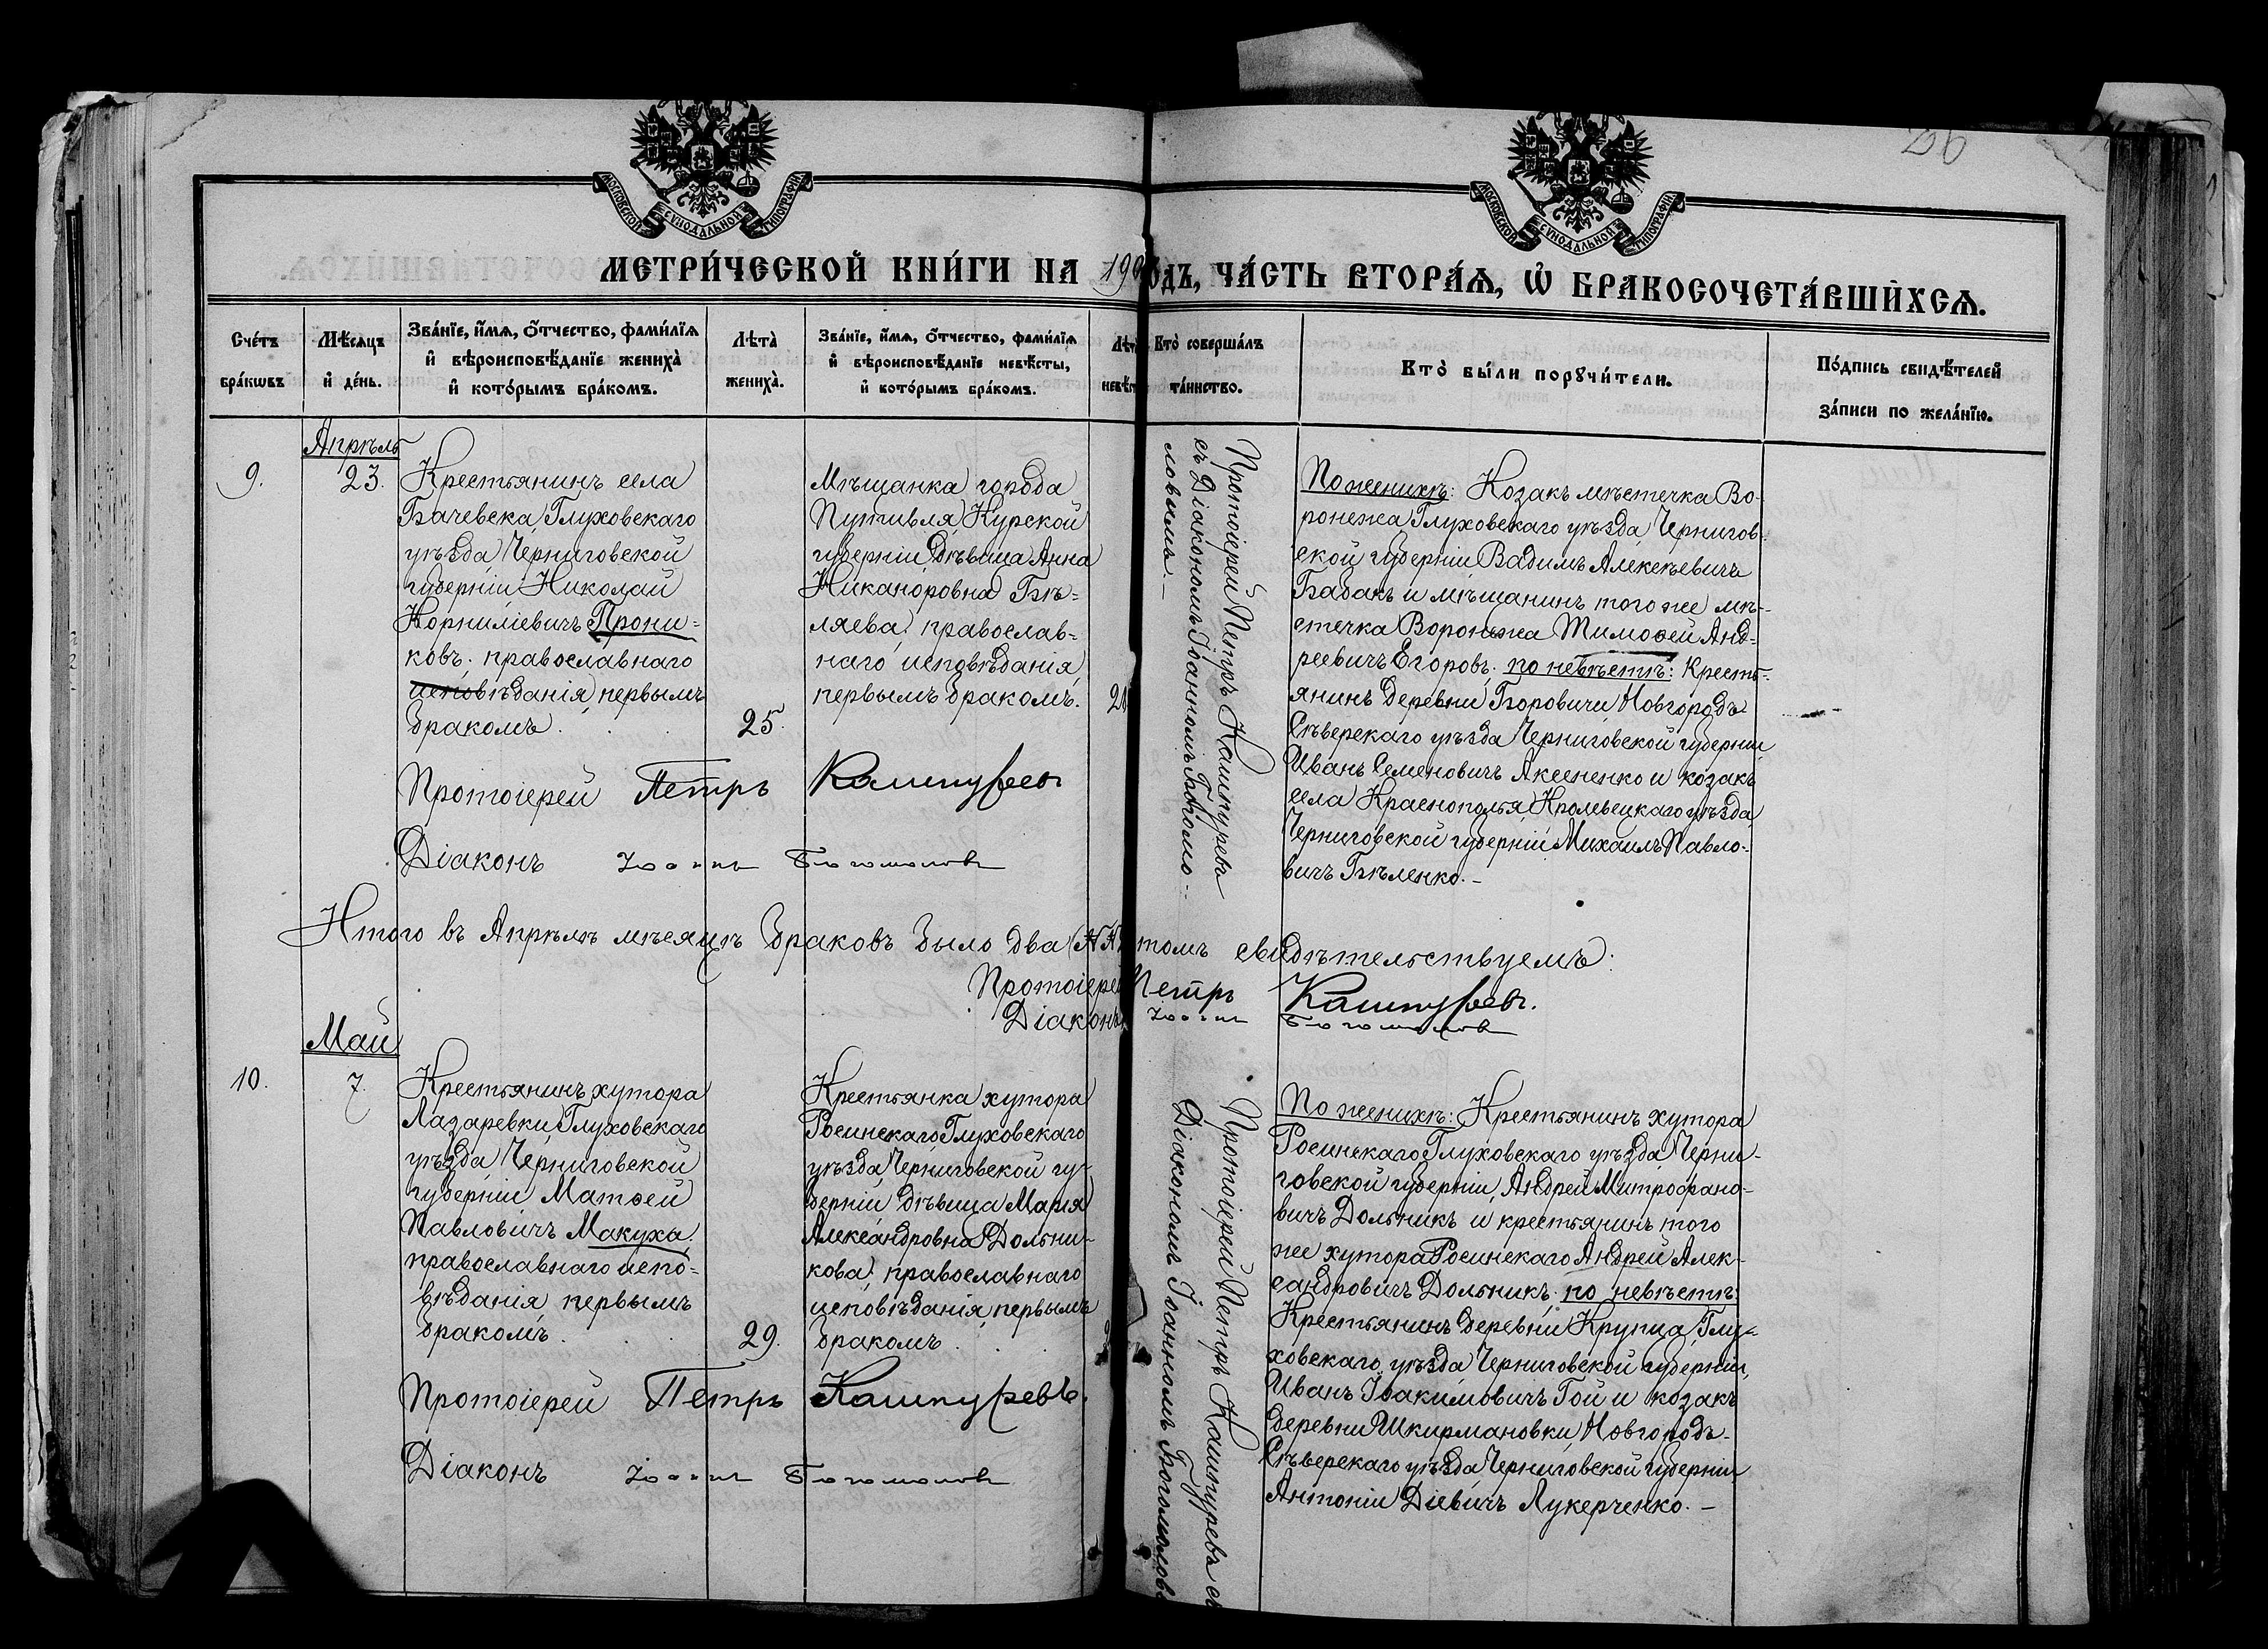 МОСКОВСКОЙ СѴНОДАЛЬНОЙ ТИПОГРАФІИ
МОСКОВСКОЙ СѴНОДАЛЬНОЙ ТИПОГРАФІИ
МЕТРИ́ЧЕСКОЙ КНИ́ГИ НА 190 ОДЪ, ЧА́СТЬ ВТОРА́Ѧ, Ѡ҆ БРАКОСОЧЕТА́ВШИХСѦ.
Сче́тъ
бра́кωвъ
Мѣ́сяцъ
и҆ де́нь.
Зва́нїе, и҆́мѧ, ѻ҆́тчество, фами́лїѧ
и҆ вѣроисповѣ́данїе жениха̀
и҆ кото́рымъ бра́комъ.
Лѣта̀
жениха̀.
Зва́нїе, и҆́мѧ, ѻ҆́тчество, фами́лїѧ
и҆ вѣроисповѣ́данїе невѣ́сты,
и҆ кото́рымъ бра́комъ.
Лѣт
невѣ́ст
Кто̀ соверша́лъ
та́инство.
Кто̀ бы́ли порꙋчи́тели.
По́дпись свидѣ́телей
за́писи по жела́нїю.
Апрѣль
9.
23.
Крестьянинъ села
Бачевска, Глуховскаго
уѣзда, Черниговской
губерніи, Николай
Корниліевичъ Прони-
ковъ, православнаго
исповѣданія, первымъ
бракомъ.
25.
Мѣщанка города
Путивля, Курской
губерніи, дѣвица Анна
Никаноровна Бѣ-
ляева, православ-
наго исповѣданія,
первымъ бракомъ.
Протоіерей Петръ Кашпуревъ
съ Діакономъ Іоанномъ Богомо-
ловымъ.—
По женихѣ: Козакъ мѣстечка Во-
ронежа Глуховскаго уѣзда, Чернигов-
ской губерніи Вадимъ Алексѣевичъ
Бабакъ и мѣщанинъ того же мѣ-
стечка Воронежа Тимоѳей Анд-
реевичъ Егоровъ; по невѣстѣ: Кресть-
янинъ деревни Боровичи, Новгородъ-
Сѣверскаго уѣзда Черниговской губерніи
Иванъ Семеновичъ Аксененко и козакъ
села Краснополья, Кролевецкаго уѣзда,
Черниговской губерніи Михаилъ Павло-
вичъ Бѣленко.—
Протоіерей Петръ Кашпуревъ
Діаконъ Іоаннъ Богомоловъ
Итого въ Апрѣлѣ мѣсяцѣ браковъ было два томъ свидѣтельствуемъ:
Протоіерей Петръ Кашпуревъ.
Діаконъ Іоаннъ Богомоловъ
Май
10.
7.
Крестьянинъ хутора
Лазаревки, Глуховскаго
уѣзда, Черниговской
губерніи Матѳей
Павловичъ Макуха,
православнаго испо-
вѣданія, первымъ
бракомъ.
29.
Крестьянка хутора
Росинскаго Глуховскаго
уѣзда, Черниговской гу-
берніи, дѣвица Марія
Александровна Дольни-
кова, православнаго
исповѣданія, первымъ
бракомъ.
Протоіерей Петръ Кашпуревъ съ
Діакономъ Іоанномъ Богомоловы
По женихѣ: Крестьянинъ хутора
Росинскаго Глуховскаго уѣзда, Черни-
говской губерніи, Андрей Митрофано-
вичъ Дольникъ и крестьянинъ того
же хутора Росинскаго Андрей Алек-
сандровичъ Дольникъ; по невѣстѣ:
Крестьянинъ деревни Крупца, Глу-
ховскаго уѣзда Черниговской губерніи,
Иванъ Іоакимовичъ Гой и козакъ
деревни Шкирмановки, Новгородъ-
Сѣверскаго уѣзда Черниговской губерніи
Антоній Діевичъ Лукерченко.—
Протоіерей Петръ Кашпуревъ.
Діаконъ Іоаннъ Богомоловъ